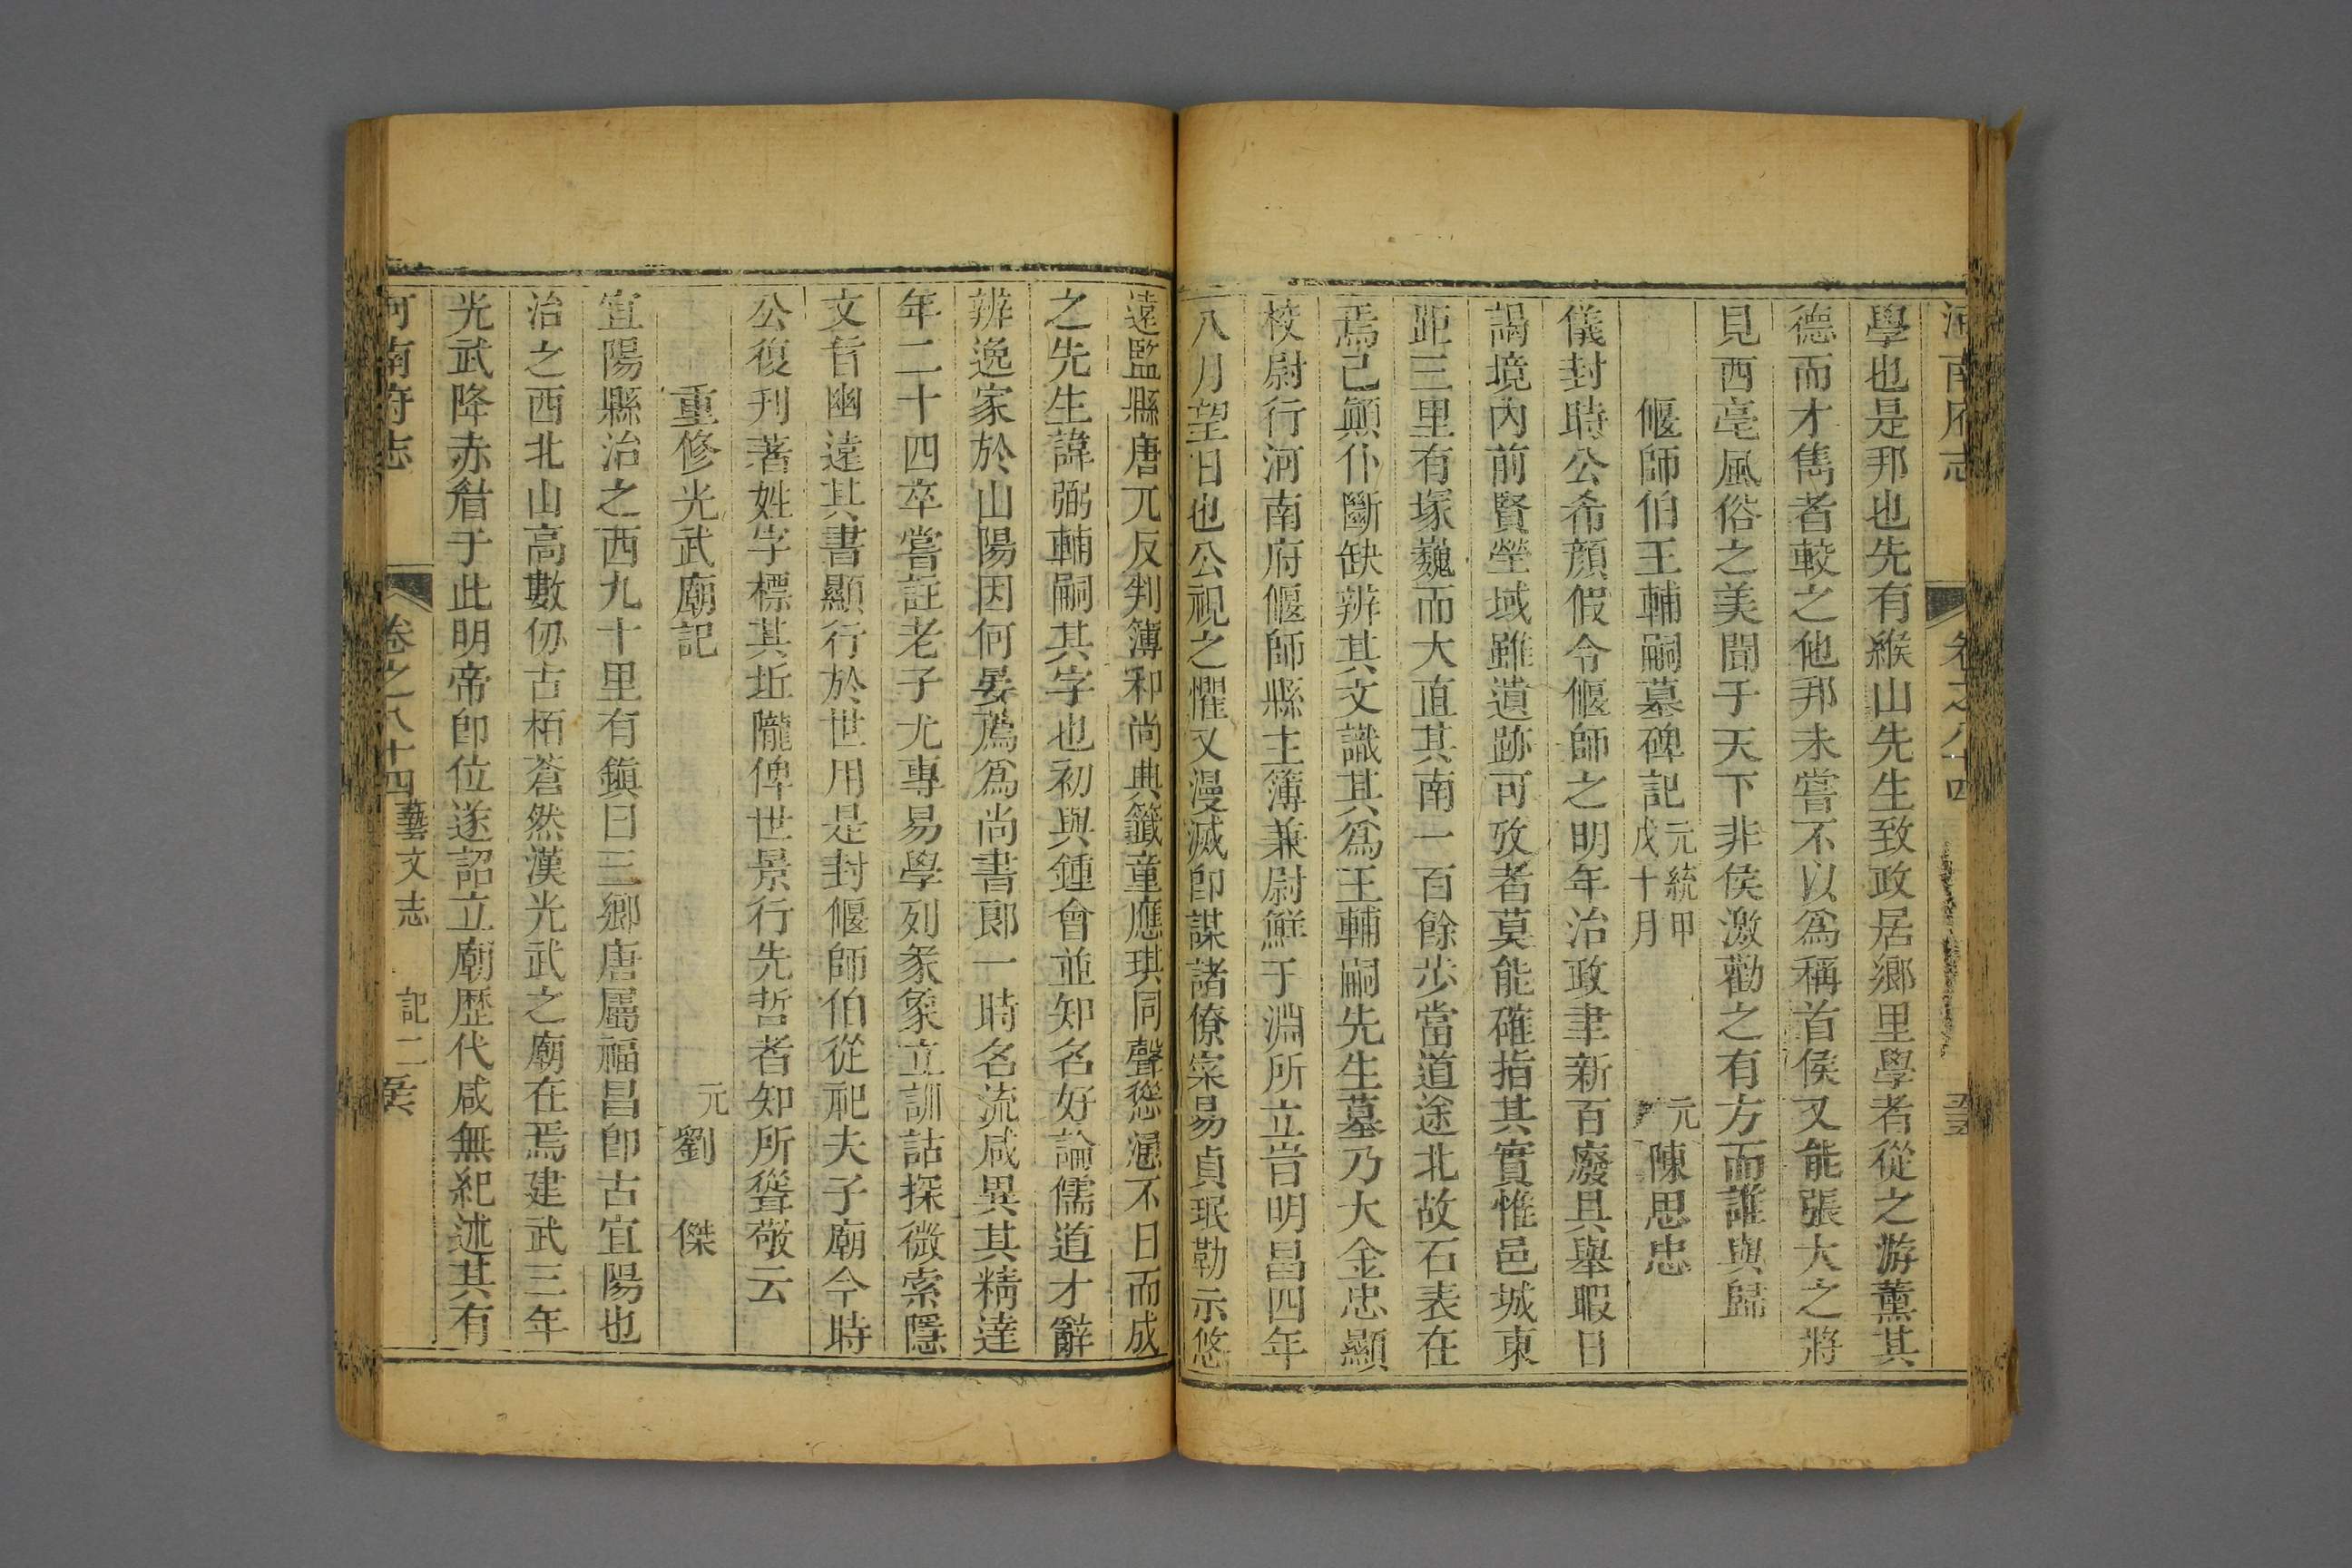 河南府志 卷之八十四
學也是邦也先有緱山先生致政居鄉里學者從之游薰其
德而才雋者較之他邦未嘗不以爲稱首侯又能張大之將
見西亳風俗之美聞于天下非侯激勸之有方而誰與歸
偃師伯王輔嗣墓碑記 元統甲戌十月 元 陳思忠
儀封時公希顔假令偃師之明年治政聿新百廢具舉暇日
謁境內前賢塋域雖遺跡可攷者莫能確指其實惟邑城東
距三里有塚巍而大直其南一百餘步當道途北故石表在
焉己顛仆斷缺辨其文識其爲王輔嗣先生墓乃大金忠顯
校尉行河南府偃師縣主簿兼尉鮮于淵所立旹明昌四年
八月望日也公視之懼又漫滅卽謀諸僚寀易貞珉勒示悠
遠監縣唐兀反判簿和尚典籤童應琪同聲慫慂不日而成
之先生諱弼輔嗣其字也初與鍾會並知名好論儒道才辭
辨逸家於山陽因何晏薦爲尚書郎一時名流咸異其精達
年二十四卒嘗註老子尤專易學列彖象立訓詁探微索隱
文旨幽遠其書顯行於世用是封偃師伯從祀夫子廟今時
公復刋著姓字標其坵隴俾世景行先哲者知所聳敬云
重修光武廟記 元 劉 傑
宜陽縣治之西九十里有鎭曰三鄉唐屬福昌卽古宜陽也
治之西北山高數仞古栢蒼然漢光武之廟在焉建武三年
光武降赤眉于此明帝卽位遂詔立廟歴代咸無紀述其有
河南府志 卷之八十四 藝文志 記二